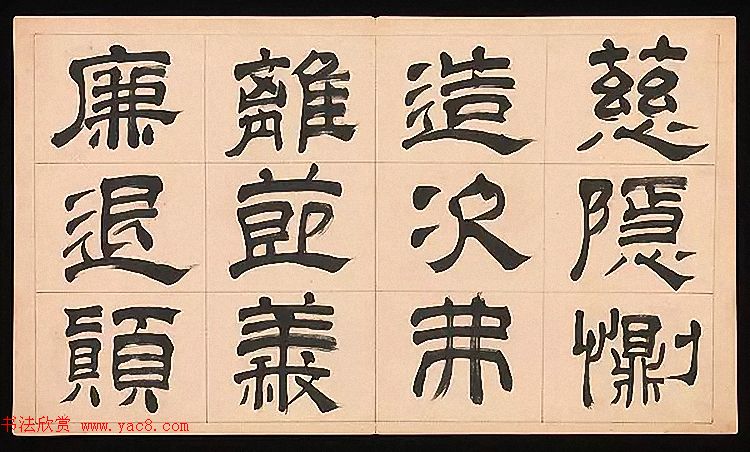 慈隱惻
造次弗
離節義
廉退顛
书法欣赏 www.yac8.com